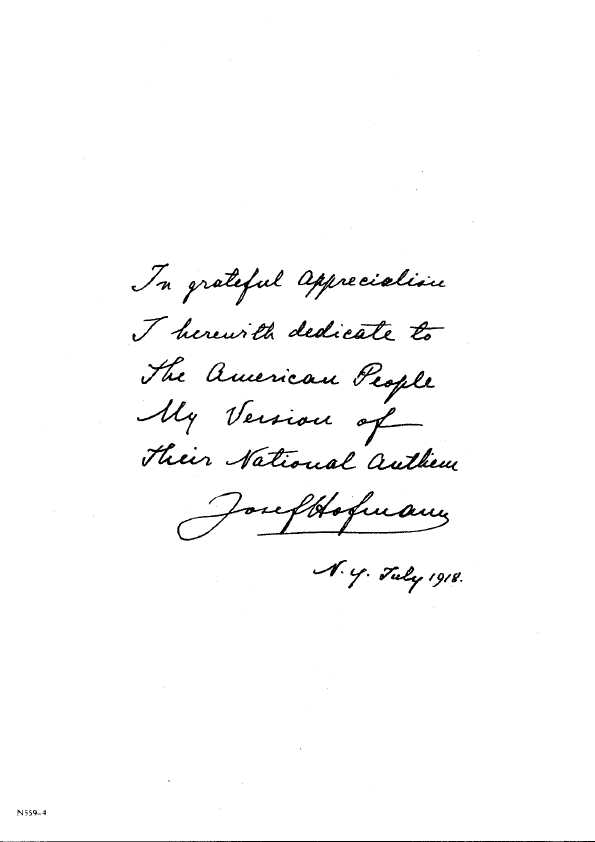 In grateful Appreciation
I herewith dedicate to
The American People
My Version of
Their National Anthem
Josef Hofmann
N.Y. July 1918.
N559-4